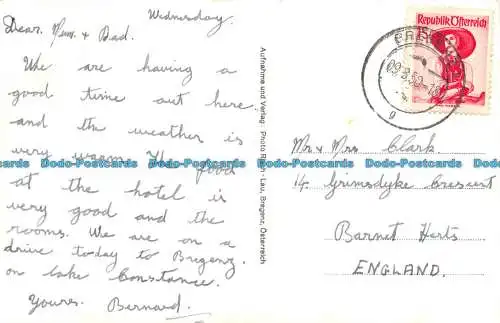 Wednesday
Dear. Mum. & Dad.
We are having a
good time out here
and the weather is
very warm. The food
at the hotel is
very good and the
rooms. We are on a
drive today to Bregenz
on lake Constance.
Yours. Bernard.
Aufnahme und Verlag: Photo Risch-Lau, Bregenz, Österreich
Republik Österreich
Mr & Mrs Clark.
14. Grimsdyke Crescent
Barnet Herts
ENGLAND.
Dodo-Postcards Dodo-Postcards Dodo-Postcards Dodo-Postcards